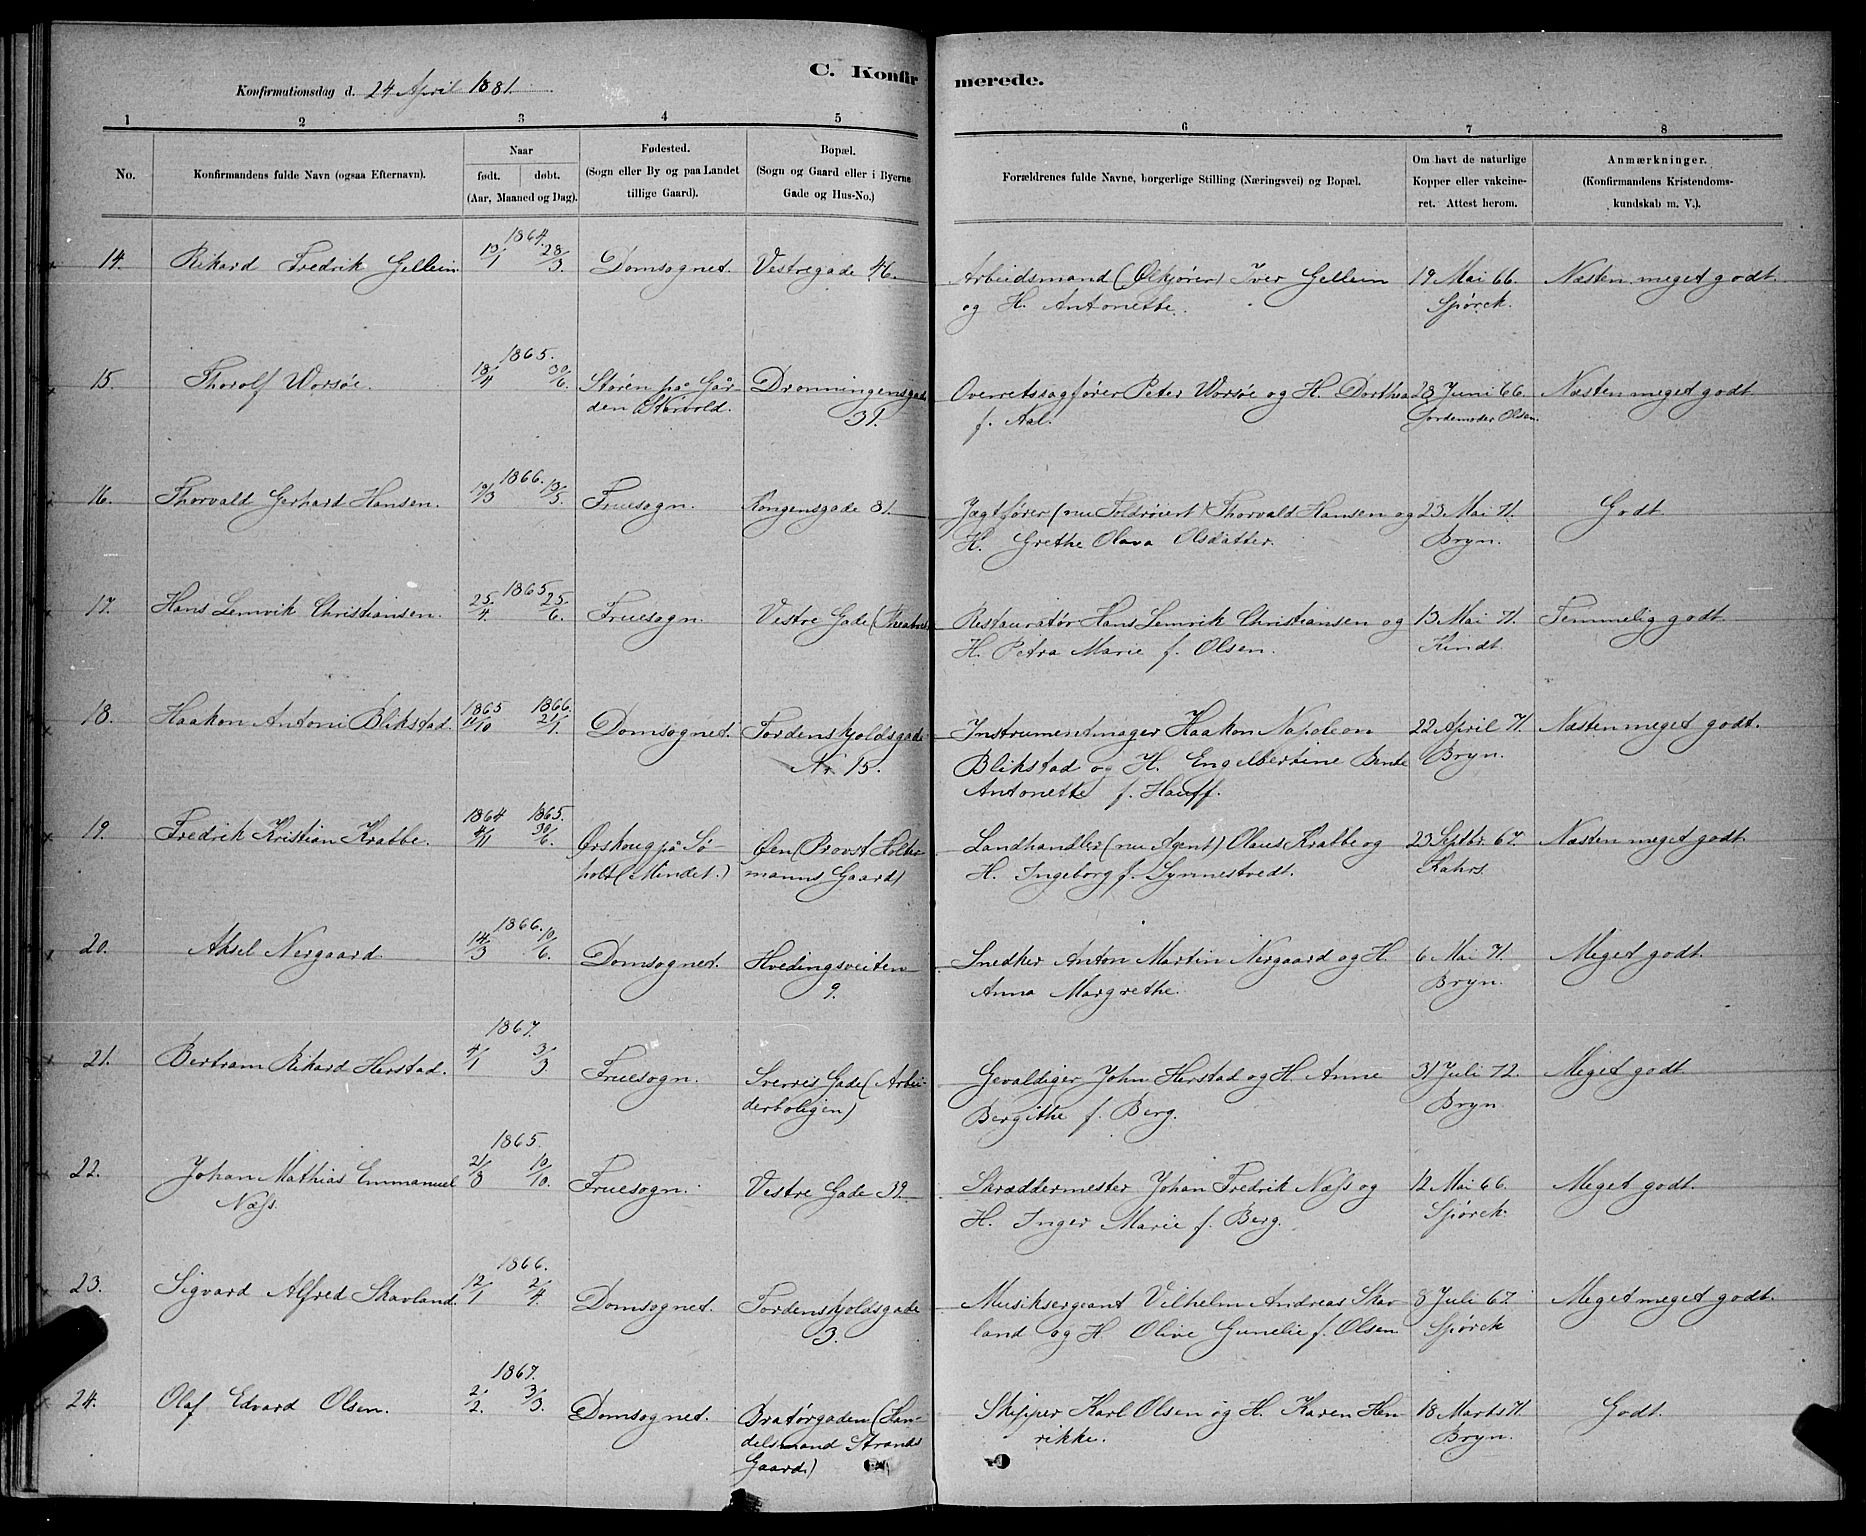 C. Konfirmerede.
Konfirmationsdag d. 24 April 1881.
1 2 3 4 5 6 7 8
No.
Konfirmandens fulde Navn (ogsaa Efternavn).
Naar
født. døbt.
(Aar, Maaned og Dag).
Fødested.
(Sogn eller By og paa Landet
tillige Gaard).
Bopæl.
(Sogn og Gaard eller i Byerne
Gade og Hus-No.)
Forældrenes fulde Navne, borgerlige Stilling (Næringsvei) og Bopæl.
Om havt de naturlige
Kopper eller vakcine-
ret. Attest herom.
Anmærkninger.
(Konfirmandens Kristendoms-
kundskab m. V.).
1864.
14. Rikard Fredrik Gellein 13/1 28/3. Domsognet. Vestregade 46. Arbeidsmand (Ølkjører) Iver Gellein 19 Mai 66. Næsten meget godt.
og H. Antonette. Spørck.
1865.
15. Thorolf Worsøe. 18/4 30/6. Støren på Går- Dronningensgade Overretssagfører Peter Worsøe og H. Dorthea 28 Juni 66. Næsten meget godt.
den 31. f. Aal. Jordemoder Olsen.
1866.
16. Thorvald Gerhard Hansen. 19/3 13/5. Fruesogn. Kongensgade 81. Jægtfører (nu ) Thorvald Hansen og 23 Mai 71. Godt
H. Grethe Olava Olsdatter. Bryn.
1865
17. Hans Lemvik Christiansen. 25/4. 25/6. Fruesogn. Vestre Gade (Theatret Restauratør Hans Lemvik Christiansen og 13 Mai 71. Temmelig godt.
H. Petra Marie f. Olsen. Kindt.
1865 1866.
18. Haakon Antoni Blikstad. 11/10 21/1. Domsognet. Tordenskjoldsgade Instrumentmager Haakon Napoleon 22 April 71. Næsten meget godt.
Nr. 15. Blikstad og H. Engelbertine Bente Bryn.
Antonette f. Hauff.
1864 1865.
19. Fredrik Kristian Krabbe. 4/11 30/6. Ørskoug på Sø- Øen (Provst Holter- Landhandler (nu Agent) Olaus Krabbe og 23 Septbr. 67. Næsten meget godt.
holt (Mindet.) manns Gaard) H. Ingeborg f. Lynnestvedt. Kahrs.
1866.
20. Aksel Nergaard. 14/3 10/6. Domsognet. Hvedingsveiten Snedker Anton Martin Nergaard og H. 6 Mai 71. Meget godt.
9. Anna Margrethe. Bryn.
1867.
21. Bertram Rikard Herstad. 4/1 3/3 Fruesogn. Sverris Gade (Arbei- Gevaldiger John Herstad og H. Anne 31 Juli 72. Meget godt.
derboligen) Bergithe f. Berg. Bryn
1865.
22. Johan Mathias Emmanuel 21/8 10/10. Fruesogn. Vestre Gade 39. Skræddermester Johan Fredrik Næss og 12 Mai 66. Meget godt.
Næss. H. Inger Marie f. Berg. Spørck.
1866.
23. Sigvard Alfred Skavland. 12/1 2/4. Domsognet. Tordenskjoldsgade Musiksergeant Vilhelm Andreas Skav- 8 Juli 67. Meget meget godt.
3. land og H. Olive Gunelie f. Olsen. Spørck
1867.
24. Olaf Edvard Olsen. 2/2. 3/3. Domsognet. Bratørgaden (Han- Skipper Karl Olsen og H. Karen Hen- 18 Marts 71. Godt.
delsmand Strands rikke. Bryn.
Gaard)